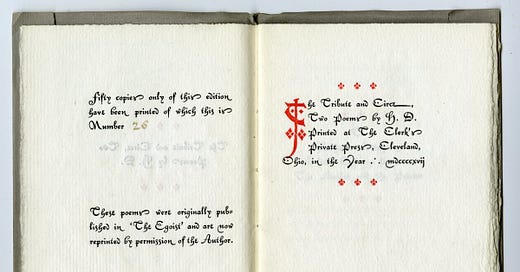 Fifty copies only of this edition
have been printed of which this is
Number 26
These poems were originally pub-
lished in 'The Egoist' and are now
reprinted by permission of the Author.
The Tribute and Circe,
Two Poems by H. D.
Printed at The Clerk's
Private Press, Cleveland,
Ohio, in the Year ∴ mdccccxvij